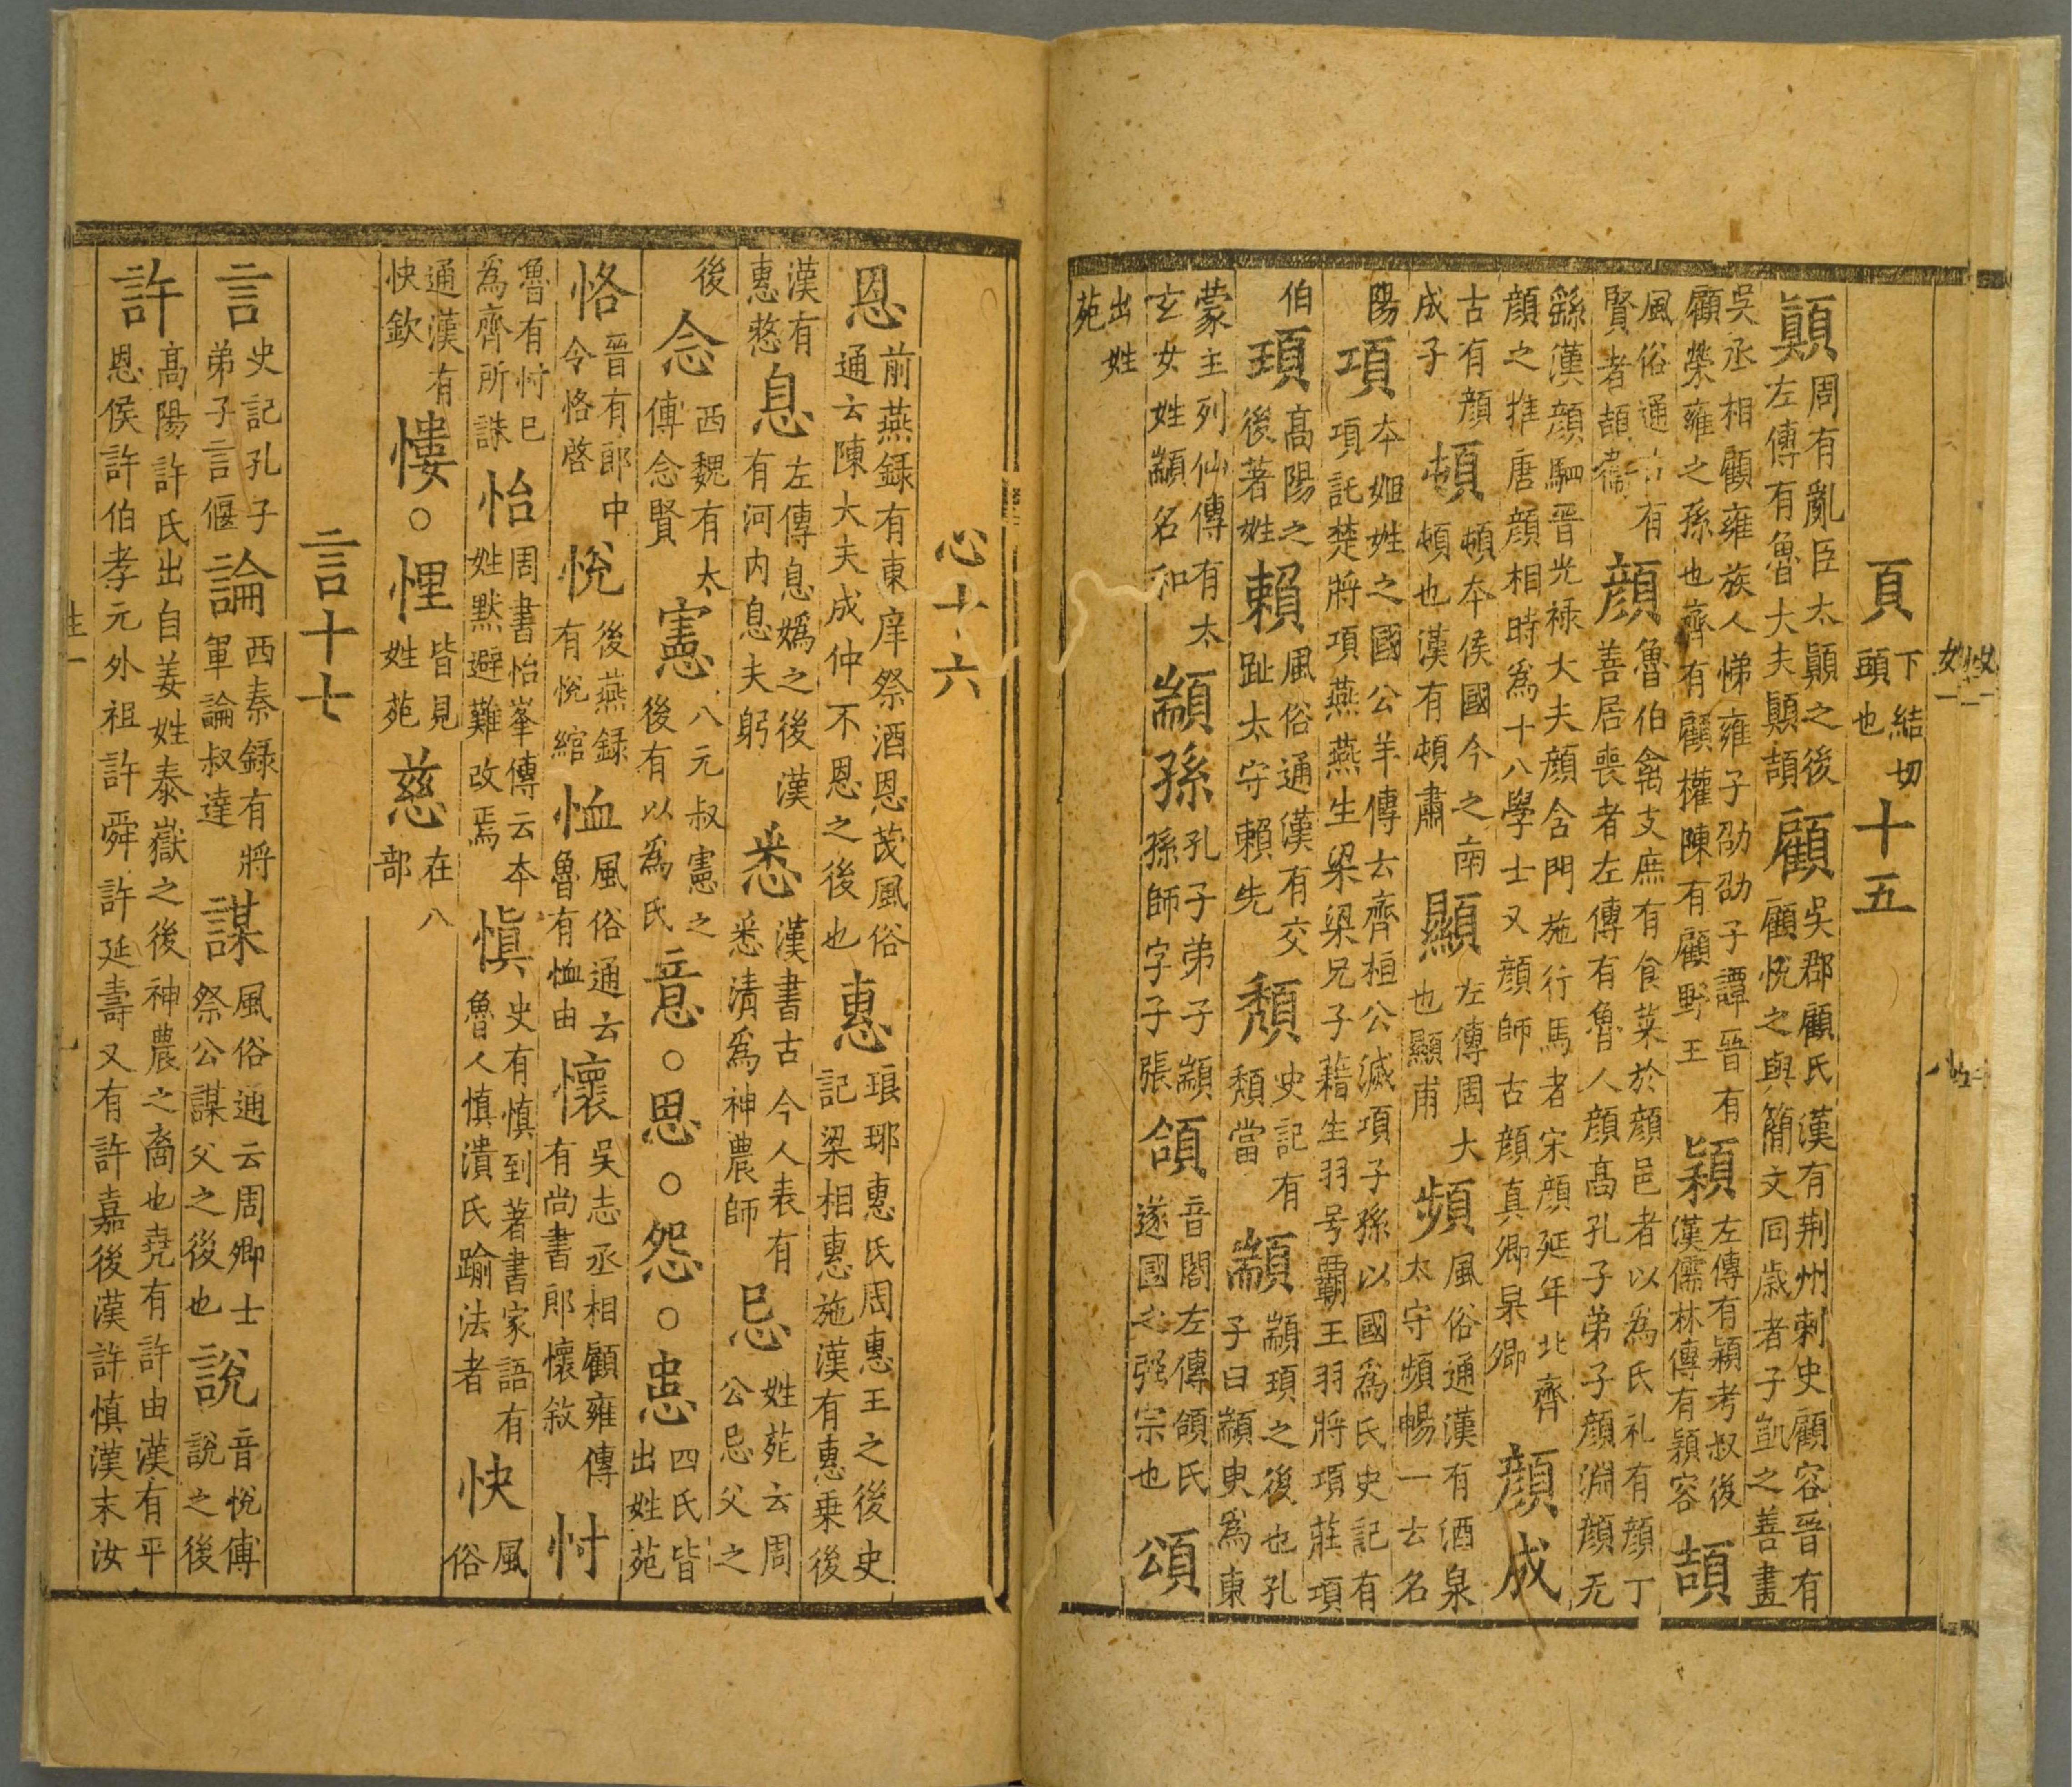 頁下結切頭也十五
顚周有亂臣太顚之後左傳有魯大夫顚頡顧吳郡顧氏漢有荆州刺史顧容晉有顧悅之與簡文同歲者子凱之善畫
吳丞相顧雍族人悌雍子劭劭子譚晉有顧榮雍之孫也齊有顧權陳有顧野王穎左傳有穎考叔後漢儒林傳有穎容頡
風俗通有賢者頡顔魯伯禽支庶有食菜於顔邑者以爲氏礼有顔丁善居喪者左傳有魯人顔高孔子弟子顔淵顔无
繇漢顔駟晉光禄大夫顔含門施行馬者宋顔延年北齊顔之推唐顔相時爲十八學士又顔師古顔真卿杲卿顔成
古有顔成子頓頓夲侯國今之南頓也漢有頓肅顯左傳周大也顯甫頻風俗通漢有酒泉太守頻暢一云名
陽項夲姬姓之國公羊傳云齊桓公滅項子孫以國爲氏史記有項託楚將項燕燕生梁梁兄子藉生羽号霸王羽將項莊項
伯頊高陽之後著姓賴風俗通漢有交趾太守賴先頽史記有頽當顓顓頊之後也孔子曰顓臾爲東
蒙主列仙傳有太玄女姓顓名和顓孫孔子弟子顓孫師字子張頜音閤左傳頜氏遂國之強宗也頌
出姓苑
心十六
恩前燕録有東庠祭酒恩茂風俗通云陳大夫成仲不恩之後也惠琅琊惠氏周惠王之後史記梁相惠施漢有惠乗後
漢有惠憗息左傳息嬀之後漢有河内息夫躬悉漢書古今人表有悉清爲神農師忌姓苑云周公忌父之
後念西魏有太傅念賢憲八元叔憲之後有以爲氏意○思○怨○患四氏皆出姓苑
恪晉有郎中令恪啓悅後燕録有悅綰恤風俗通云魯有恤由懷吳志丞相顧雍傳有尚書郎懷敘忖
魯有忖巳爲齊所誅怡周書怡峯傳云夲姓默避難改焉慎史有慎到著書家語有魯人慎潰氏踰法者快風俗
通漢有快欽慺○悝皆見姓苑慈在八部
言十七
言史記孔子弟子言偃論西秦録有將軍論叔達謀風俗通云周卿士祭公謀父之後也說音悅傅說之後
許高陽許氏出自姜姓泰嶽之後神農之裔也堯有許由漢有平恩侯許伯孝元外祖許舜許延壽又有許嘉後漢許慎漢末汝